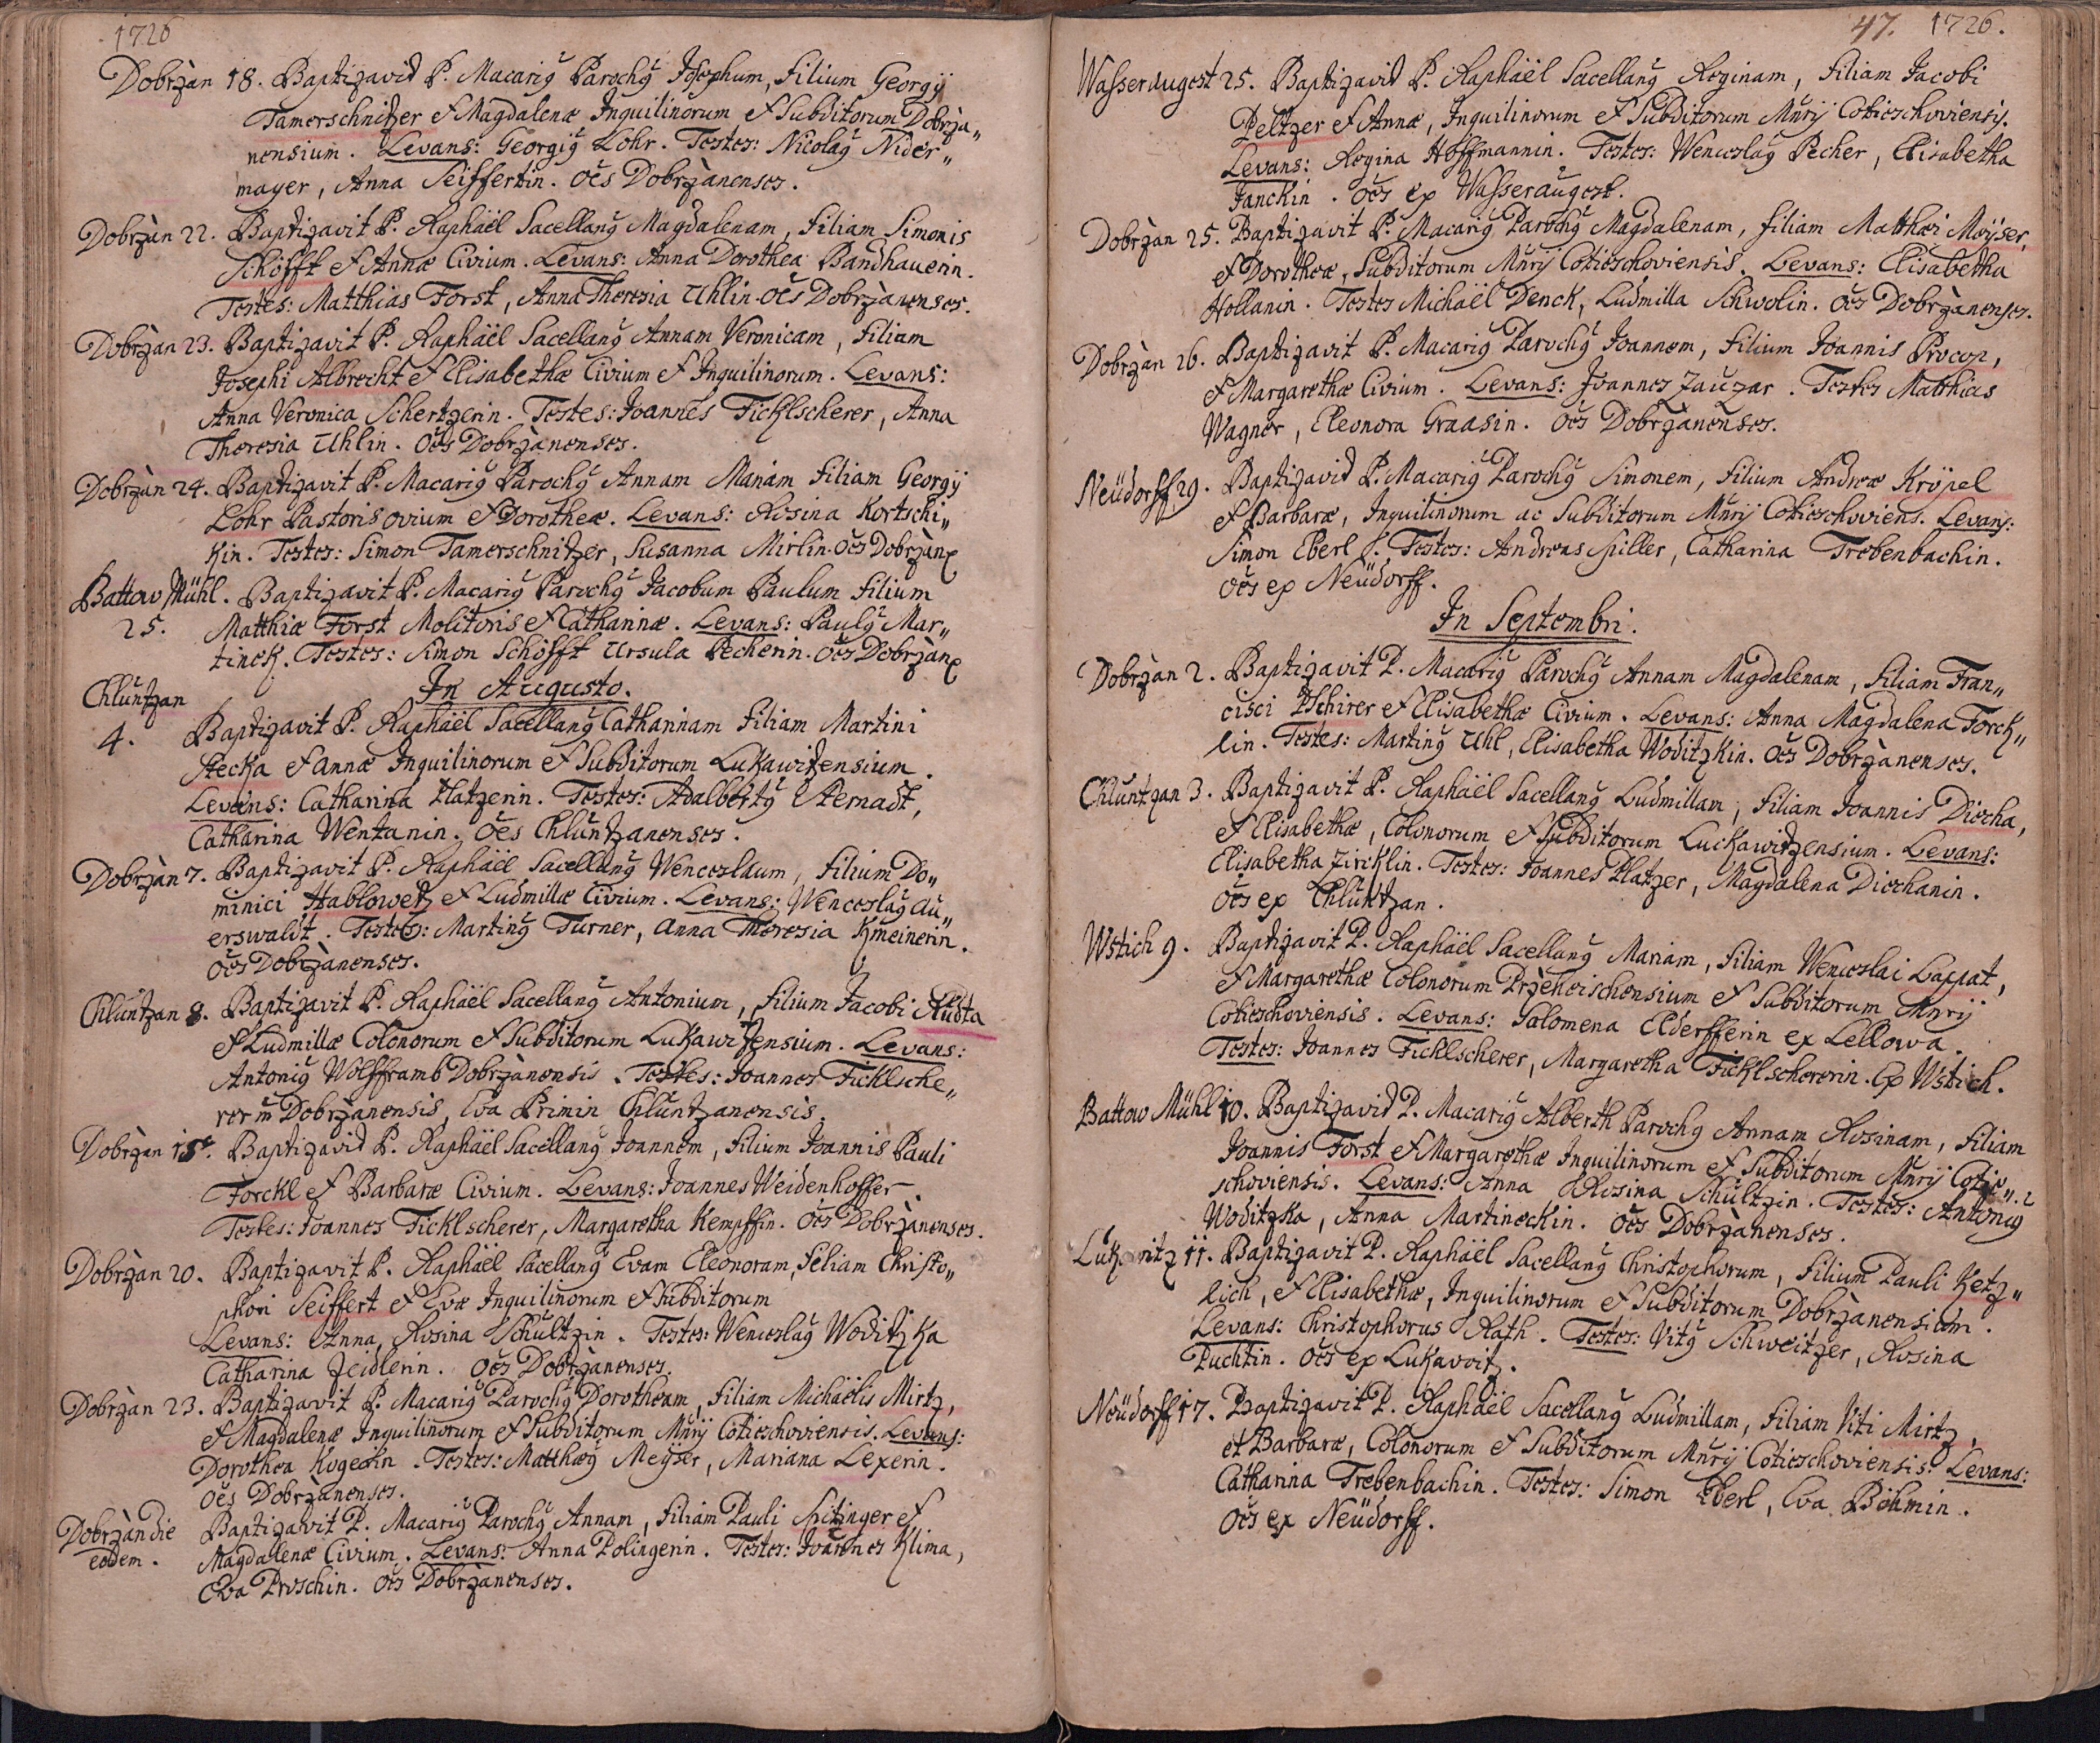 1726
Dobrzàn 18. Baptizavid P. Macariq̃ Parochq̃ Josephum, filium Georgij
Tamerschnitzer et Magdalenæ Inquilinorum et Subditorum Dobrzà„
nensium. Levans: Georgiq̃ Löhr. Testes: Nicolaq̃ Nider„
mayer, Anna Seiffertin. oe͠s Dobrzànenses.
Dobrzàn 22. Baptizavit P. Raphäel Sacellanq̃ Magdalenam, filiam Simonis
Schöfft et Annæ Civium. Levans: Anna Dorothea Bandhauerin.
Testes: Matthias Forst, Anna Theresia Uhlin. oe͠s Dobrzànenses.
Dobrzàn 23. Baptizavit P. Raphäel Sacellanq̃ Annam Veronicam, filiam
Josephi Albrecht et Elisabethæ Civium et Inquilinorum. Levans:
Anna Veronica Schertzerin. Testes: Joannes Ficklscherer, Anna
Theresia Uhlin. oe͠s Dobrzànenses.
Dobrzàn 24. Baptizavit P. Macariq̃ Parochq̃ Annam Mariam filiam Georgij
Löhr Pastoris ovium et Dorotheæ. Levans: Rosina Kortschi„
kin. Testes: Simon Tamerschnitzer, Susanna Mirlin. oe͠s Dobrzàn
Battow Mühl. Baptizavit P. Macariq̃ Parochq̃ Jacobum Paulum filium
25. Matthiæ Forst Molitoris et Catharinæ. Levans: Paulq̃ Mar„
tinek. Testes: Simon Schöfft Ursula Pecherin. oe͠s Dobrzàn
Chluntzan
In Augusto.
4. Baptizavit P. Raphäel Sacellanq̃ Catharinam filiam Martini
Stecka et Annæ Inquilinorum et Subditorum Lukawitzensium.
Levans: Catharina Hatzerin. Testes: Adalbertq̃ Sternadt,
Catharina Wentzanin. oe͠s Chluntzanenses.
Dobrzàn 7. Baptizavit P. Raphäel Sacellanq̃ Wenceslaum, filium Do„
minici Hablowetz et Ludmillæ Civium. Levans: Wenceslaq̃ Au„
erswaldt. Testes: Martinq̃ Turner, Anna Theresia Kmeinerin.
oe͠s Dobrzànenses.
Chluntzan 8. Baptizavit P. Raphäel Sacellanq̃ Antonium, filium Jacobi Rudta
et Ludmillæ Colonorum et Subditorum Lukawitzensium. Levans:
Antoniq̃ Wolfframb Dobrzànensis. Testes: Joannes Ficklsche„
rer Dobrzanensis, Eva Primin Chluntzanensis.
Dobrzàn 15. Baptizavid P. Raphäel Sacellanq̃ Joannem, filium Joannis Pauli
Forckl et Barbaræ Civium. Levans: Joannes Weidenhoffer.
Testes: Joannes Ficklscherer, Margaretha Kempffin. oe͠s Dobrzànenses.
Dobrzàn 20. Baptizavit P. Raphäel Sacellanq̃ Evam Eleonoram, filiam Christo„
phori Seiffert et Evæ Inquilinorum et Subditorum
Levans: Anna Rosina Schultzin. Testes: Wenceslaq̃ Woditzka
Catharina Zeidlerin. oe͠s Dobrzànenses.
Dobrzàn 23. Baptizavit P. Macariq̃ Parochq̃ Dorotheam, filiam Michäelis Mirtz,
et Magdalenæ Inquilinorum et Subditorum Mnrij Cotieschoviensis. Levans:
Dorothea Kogerin. Testes: Matthæq̃ Meÿser, Mariana Lexerin.
oe͠s Dobrzànenses.
Dobrzàn die Baptizavit P. Macariq̃ Parochq̃ Annam, filiam Pauli Spitzinger et
eodem. Magdalenæ Civium. Levans: Anna Polingerin. Testes: Joannes Klima,
Eva Proschin. oe͠s Dobrzànenses.
47. 1726.
Wasseraugest 25. Baptizavid P. Raphäel Sacellanq̃ Reginam, filiam Jacobi
Peltzer et Annæ, Inquilinorum et Subditorum Mnrij Cotieschoviensis.
Levans: Regina Hoffmannin. Testes: Wenceslaq̃ Pecher, Elisabetha
Janckin. oe͠s ex Wasseraugest.
Dobrzàn 25. Baptizavit P. Macariq̃ Parochq̃ Magdalenam, filiam Matthæi Moÿser,
et Dorotheæ, Subditorum Mnrij Cotieschoviensis. Levans: Elisabetha
Hollanin. Testes Michäel Denck, Ludmilla Schwolin. oe͠s Dobrzànenses.
Dobrzàn 26. Baptizavit P. Macariq̃ Parochq̃ Joannem, filium Joannis Procop,
et Margarethæ Civium. Levans: Joannes Zauzar. Testes Matthias
Wagner, Eleonora Graasin. oe͠s Dobrzànenses.
Neüdorff 29. Baptizavid P. Macariq̃ Parochq̃ Simonem, filium Andreæ Kröpel
et Barbaræ, Inquilinorum ac Subditorum Mnrij Cotieschoviens. Levans:
Simon Eberl. Testes: Andreas Spiller, Catharina Trebenbachin.
oe͠s ex Neüdorff.
In Septembri.
Dobrzàn 2. Baptizavit P. Macariq̃ Parochq̃ Annam Magdalenam, filiam Fran„
cisci Tschirer et Elisabethæ Civium. Levans: Anna Magdalena Forck„
lin. Testes: Martinq̃ Uhl, Elisabetha Woditzkin. oe͠s Dobrzànenses.
Chluntzan 3. Baptizavit P. Raphäel Sacellanq̃ Ludmillam, filiam Joannis Diecha,
et Elisabethæ, Colonorum et Subditorum Luckawitzensium. Levans:
Elisabetha Zircklin. Testes: Joannes Hatzer, Magdalena Diechanin.
oe͠s ex Chluntzan.
Wstich 9. Baptizavit P. Raphäel Sacellanq̃ Mariam, filiam Wenceslai Lappat,
et Margarethæ Colonorum Przeheischensium et Subditorum Mnrij
Cotieschoviensis. Levans: Salomena Elderfferin ex Lellowa.
Testes: Joannes Ficklscherer, Margaretha Ficklschererin. Ex Wstich.
Battow Mühl 10. Baptizavid P. Macariq̃ Alberth Parochq̃ Annam Rosinam, filiam
Joannis Forst et Margarethæ Inquilinorum et Subditorum Mnrij Cotie„
schoviensis. Levans: Anna Rosina Schultzin. Testes: Antoniq̃
Woditzka, Anna Martineckin. oe͠s Dobrzànenses.
Lukawitz 11. Baptizavit P. Raphäel Sacellanq̃ Christophorum, filium Pauli Ketz„
lich, et Elisabethæ, Inquilinorum et Subditorum Dobrzànensium.
Levans: Christophorus Rath. Testes: Vitq̃ Schweitzer, Rosina
Puchtin. oe͠s ex Lukawitz.
Neüdorff 17. Baptizavit P. Raphäel Sacellanq̃ Ludmillam, filiam Viti Mirtz,
et Barbaræ, Colonorum et Subditorum Mnrij Cotieschoviensis: Levans:
Catharina Trebenbachin. Testes: Simon Eberl, Eva Böhmin.
oe͠s ex Neüdorff.